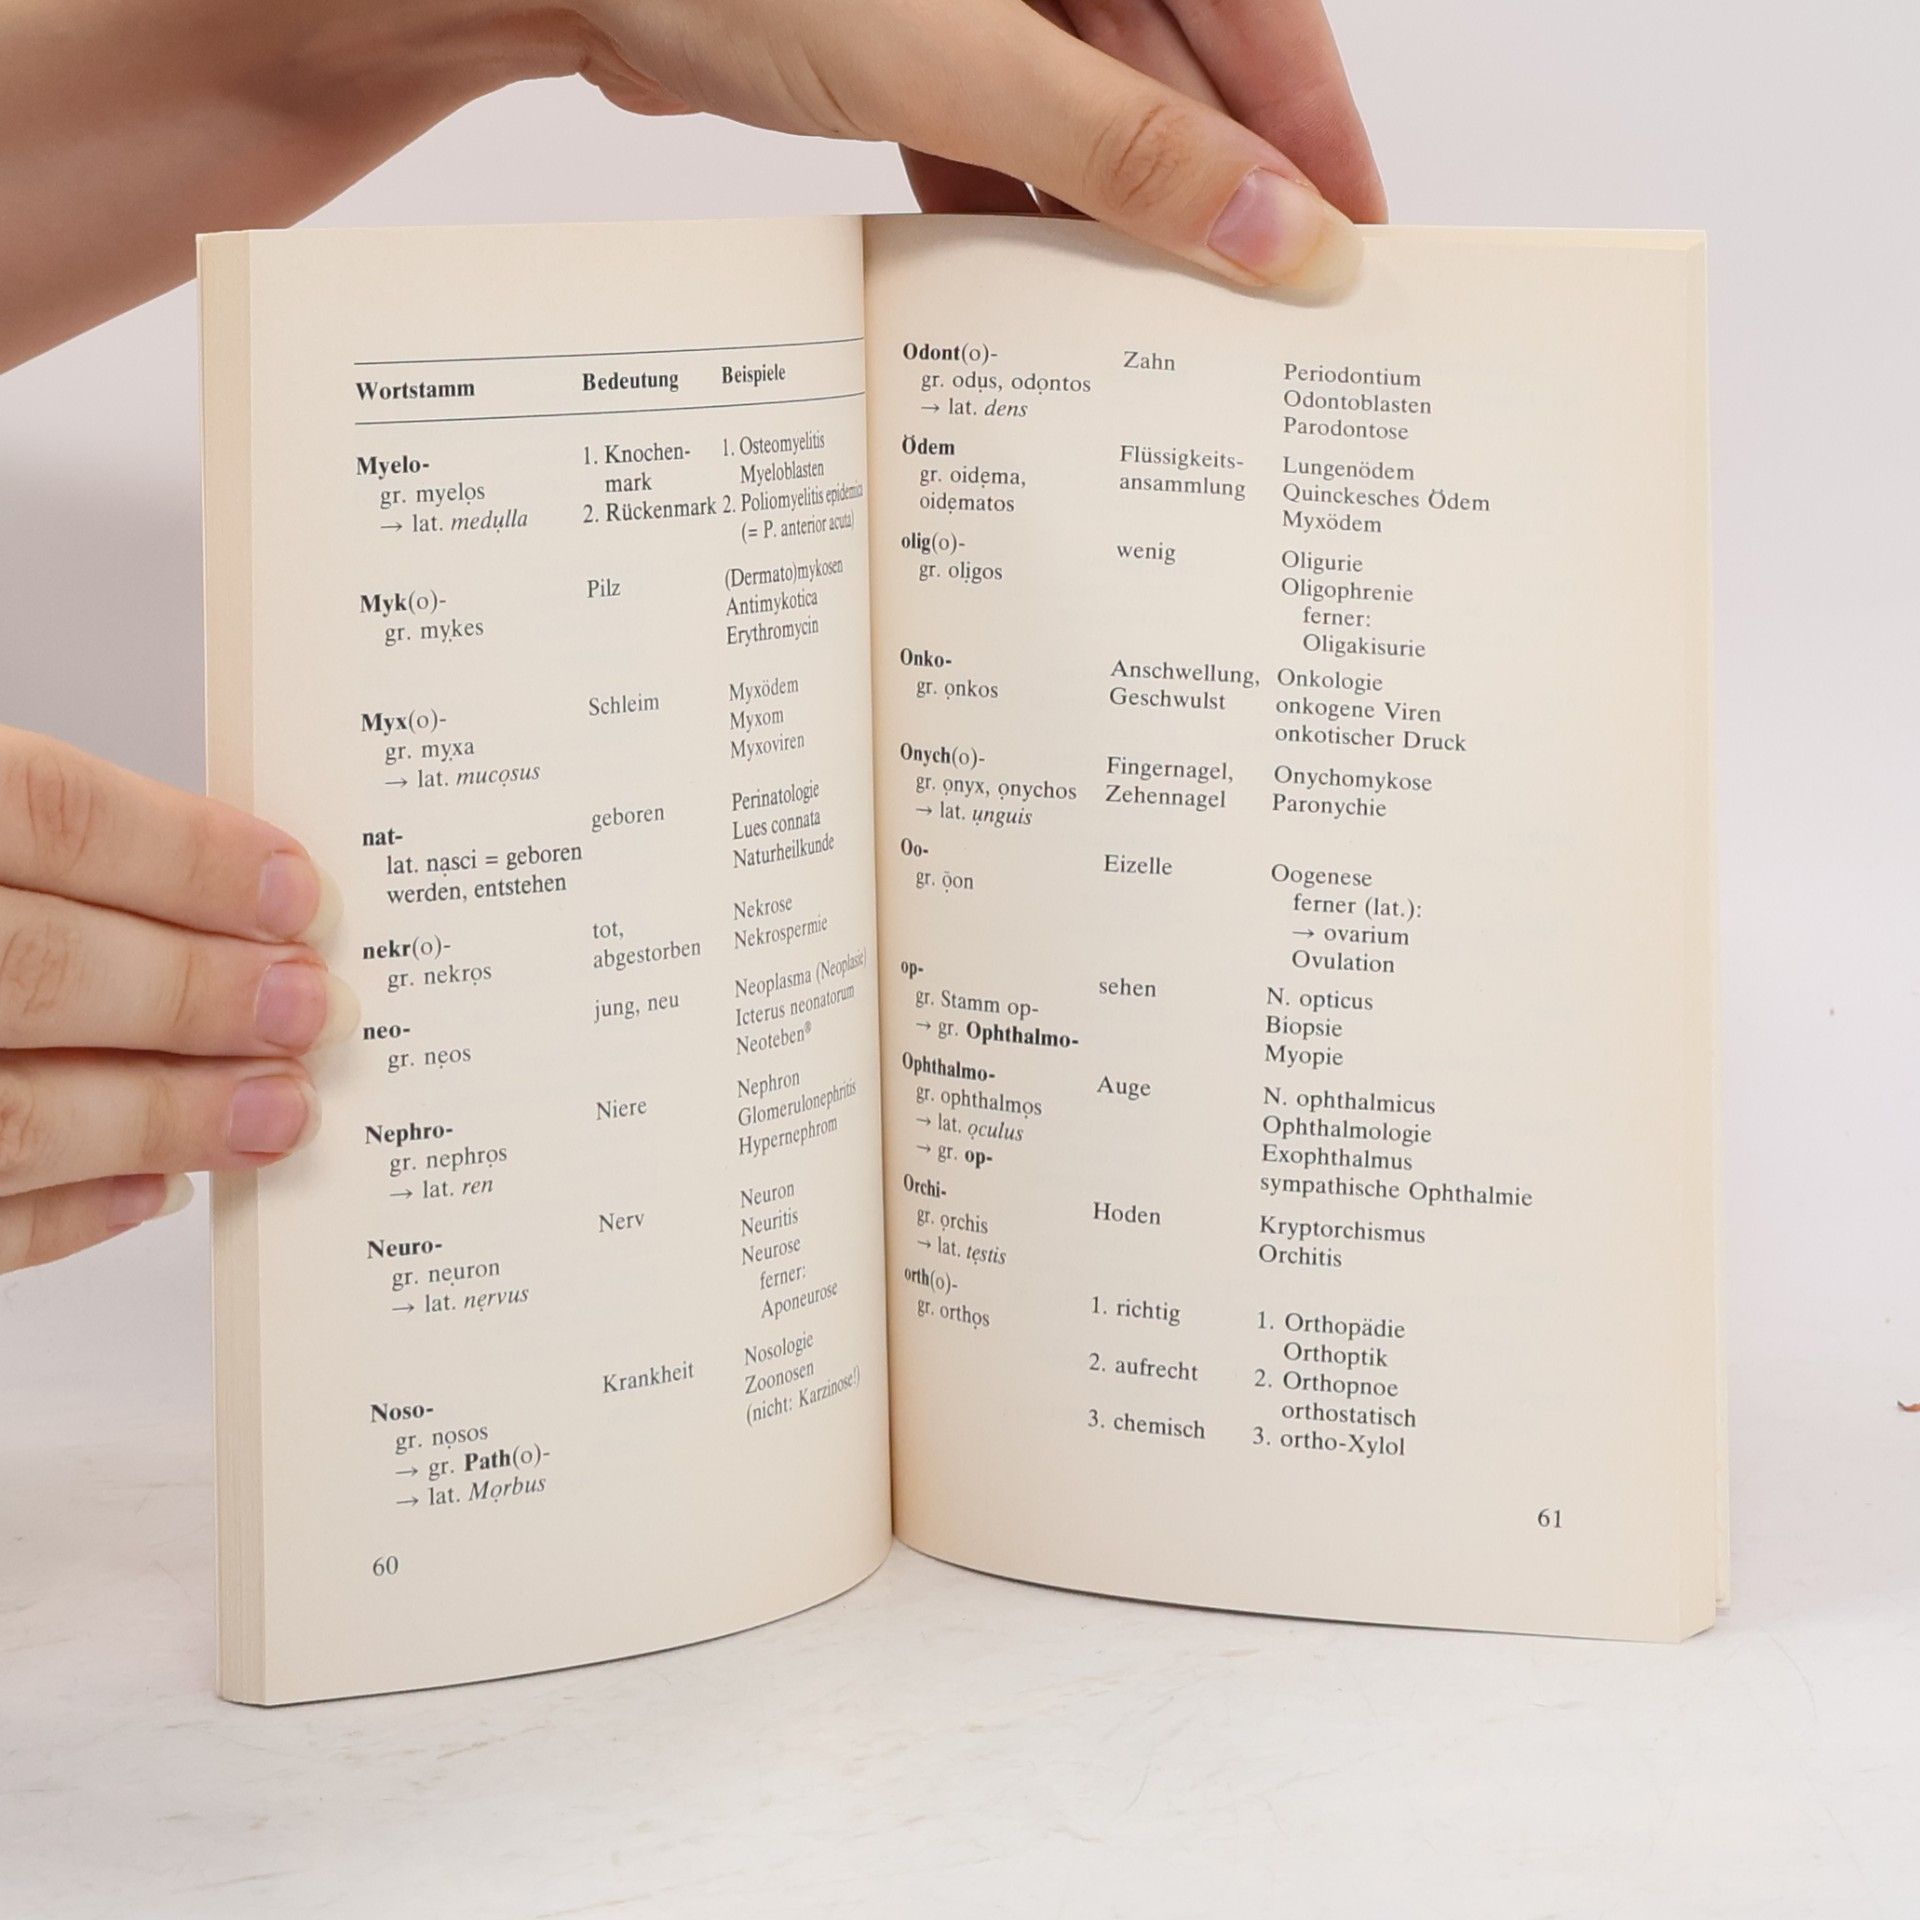 Wortstamm Bedeutung Beispiele
Myelo- 1. Knochen- 1. Osteomyelitis
gr. myelọs mark Myeloblasten
→ lat. medụlla 2. Rückenmark 2. Poliomyelitis epidemica
(= P. anterior acuta)
Myk(o)- Pilz (Dermato)mykosen
gr. mỵkes Antimykotica
Erythromycin
Myx(o)- Schleim Myxödem
gr. mỵxa Myxom
→ lat. mucọsus Myxoviren
nat- geboren Perinatologie
lat. nạsci = geboren Lues connata
werden, entstehen Naturheilkunde
nekr(o)- tot, Nekrose
gr. nekrọs abgestorben Nekrospermie
neo- jung, neu Neoplasma (Neoplasie)
gr. nẹos Icterus neonatorum
Neoteben®
Nephro- Niere Nephron
gr. nephrọs Glomerulonephritis
→ lat. ren Hypernephrom
Neuro- Nerv Neuron
gr. nẹuron Neuritis
→ lat. nẹrvus Neurose
ferner:
Aponeurose
Noso- Krankheit Nosologie
gr. nọsos Zoonosen
→ gr. Path(o)- (nicht: Karzinose!)
→ lat. Mọrbus
60
Odont(o)- Zahn Periodontium
gr. odụs, odọntos Odontoblasten
→ lat. dens Parodontose
Ödem Flüssigkeits- Lungenödem
gr. oidẹma, ansammlung Quinckesches Ödem
oidẹmatos Myxödem
olig(o)- wenig Oligurie
gr. olịgos Oligophrenie
ferner:
Oligakisurie
Onko- Anschwellung, Onkologie
gr. ọnkos Geschwulst onkogene Viren
onkotischer Druck
Onych(o)- Fingernagel, Onychomykose
gr. ọnyx, ọnychos Zehennagel Paronychie
→ lat. ụnguis
Oo- Eizelle Oogenese
gr. ọ̄on ferner (lat.):
→ ovarium
Ovulation
op- sehen N. opticus
gr. Stamm op- Biopsie
→ gr. Ophthalmo- Myopie
Ophthalmo- Auge N. ophthalmicus
gr. ophthalmọs Ophthalmologie
→ lat. ọculus Exophthalmus
→ gr. op- sympathische Ophthalmie
Orchi- Hoden Kryptorchismus
gr. ọrchis Orchitis
→ lat. tẹstis
orth(o)- 1. richtig 1. Orthopädie
gr. orthọs Orthoptik
2. aufrecht 2. Orthopnoe
orthostatisch
3. chemisch 3. ortho-Xylol
61